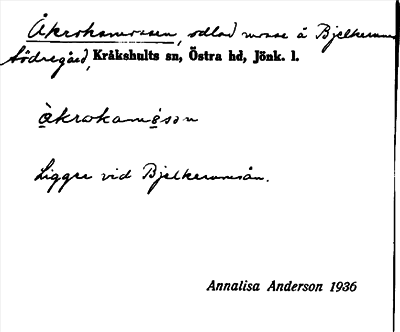 Åkrokamossen, odlad mosse å Bjelkerums
Södregård, Kråkshults sn, Östra hd, Jönk. l.
åkrokamósən
Ligger vid Bjelkerumsån.
Annalisa Anderson 1936